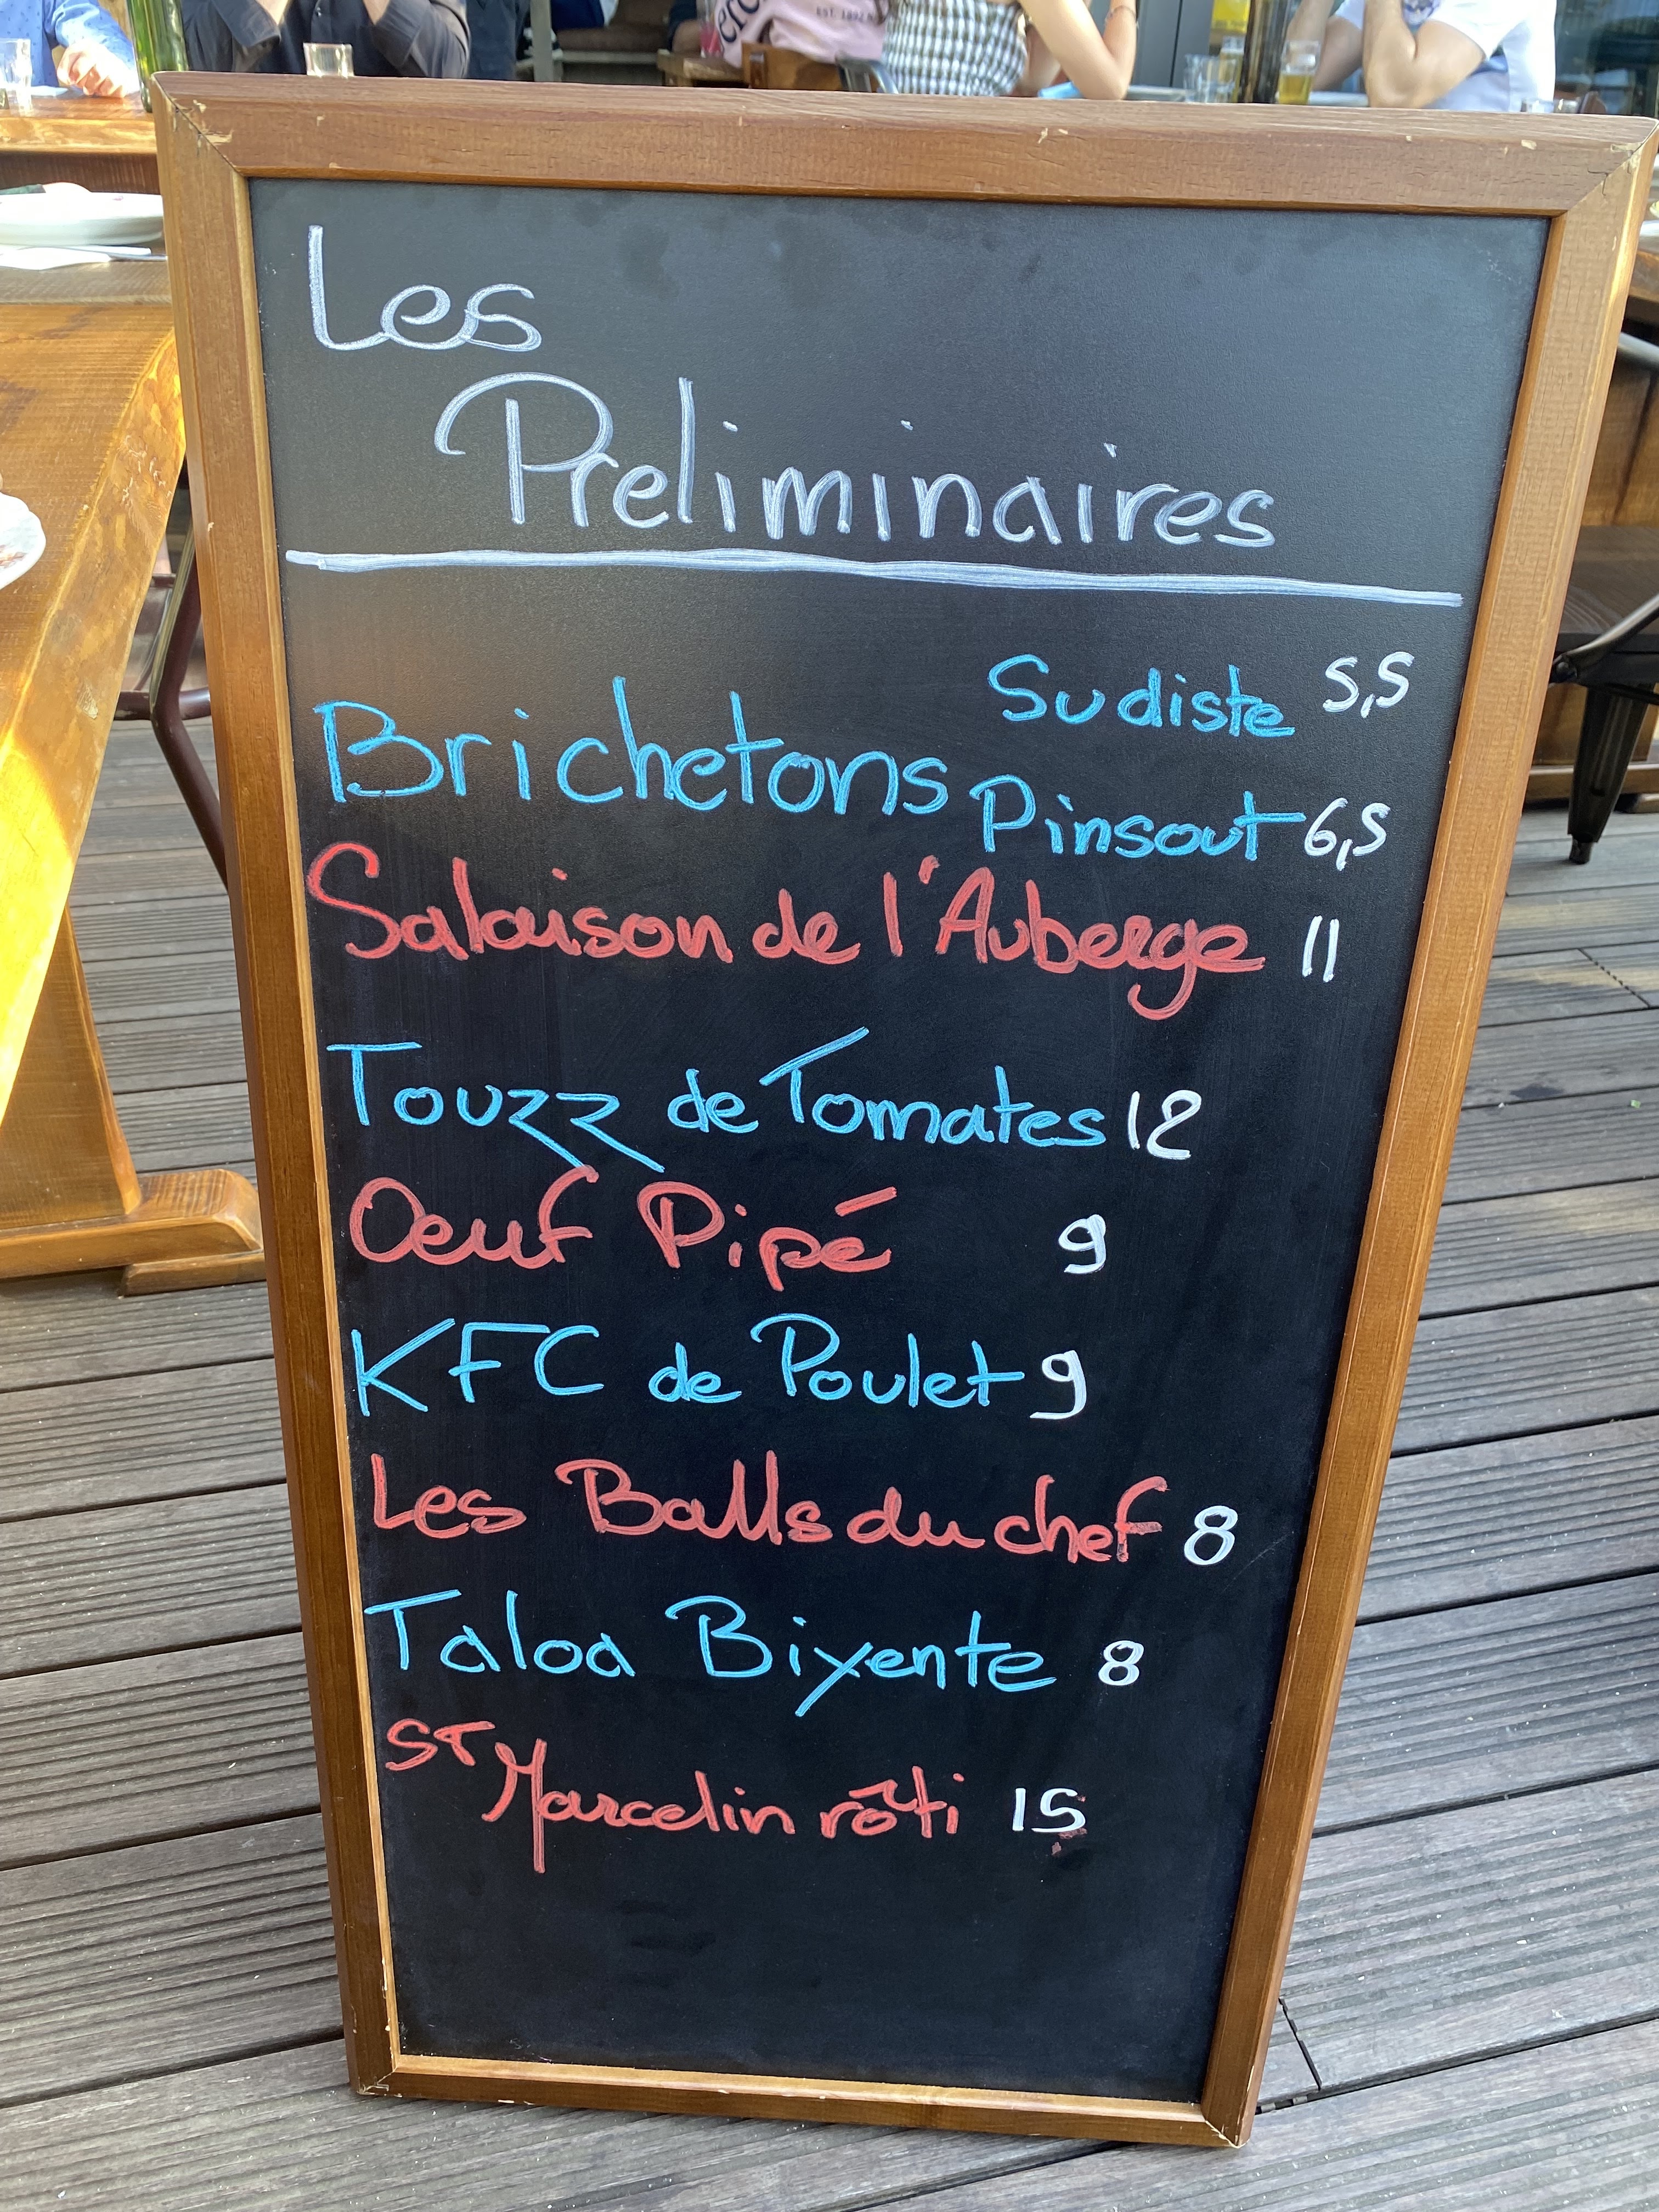 Les
Preliminaires
Sudiste 5,5
Brichetons
Pinsout 6,5
Salaison de l'Auberge 11
Touzz de Tomates 12
Oeuf Pipé 9
KFC de Poulet 9
Les Balls du chef 8
Taloa Bixente 8
St Marcelin rôti 15